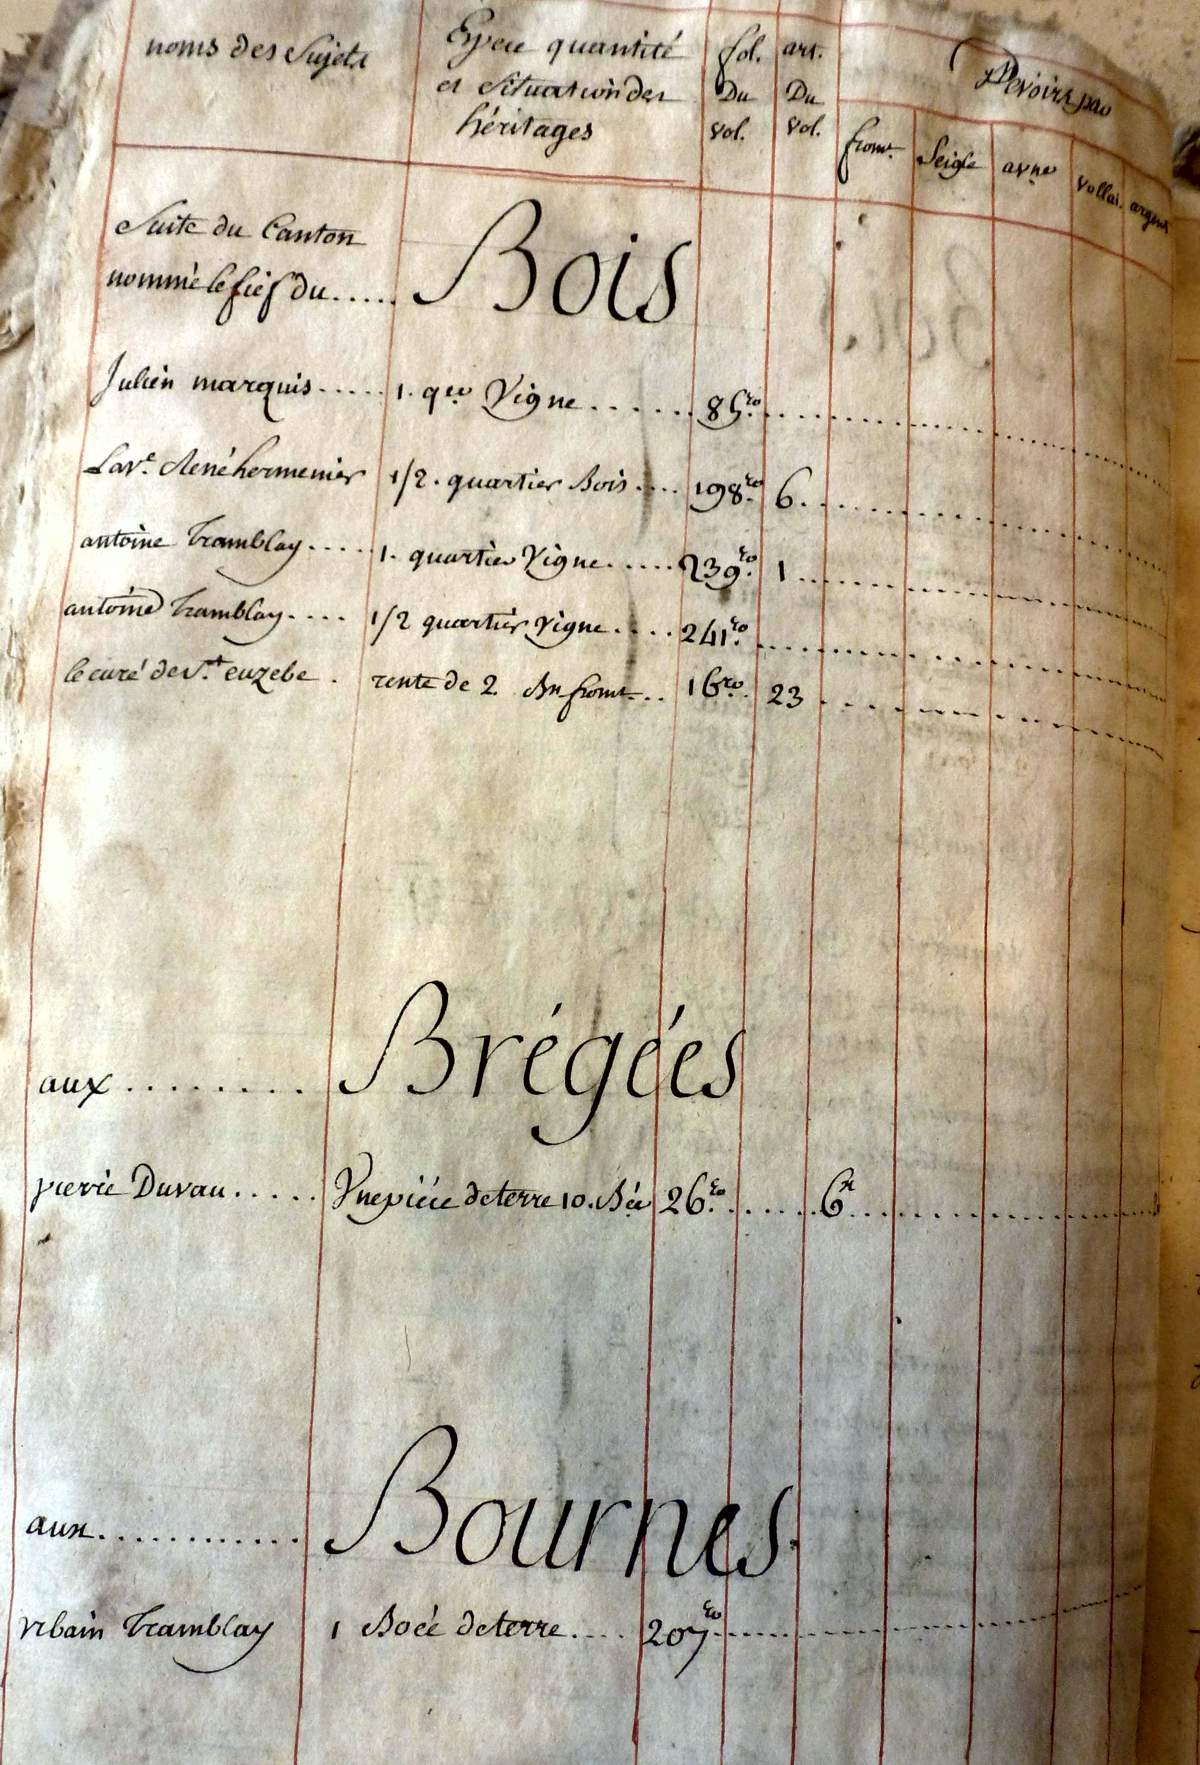 noms des Sujets Espece quantité fol. art. Devoirs par
et Situation des Du Du
héritages vol. vol. from.t Seigle av.ne vollai. argent
Suite du Canton
nommé le fief du..... Bois
Julien marquis..... 1. q.er Vigne...... 85.ro
La v.e René hermenier 1/2. quartier Bois.... 198.ro 6.
antoine Tramblay..... 1. quartier Vigne..... 239.ro 1
antoine Tramblay.... 1/2 quartier Vigne.... 241.ro
le curé de S.t euzebe. rente de 2 Bx from.t.. 16ro. 23
aux......... Brégées
pierre Duvau..... Une piéce de terre 10. Bée 26.ro 6
aux............ Bournes
Urbain Tramblay 1 Boée de terre.... 207ro